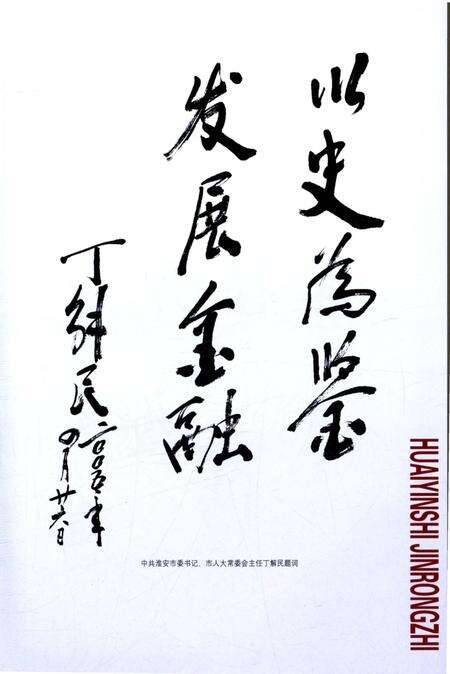 以史為鉴
发展金融
丁解民
二〇〇五年
四月廿六日
中共淮安市委书记、市人大常委会主任丁解民题词
HUAIYINSHI JINRONGZHI